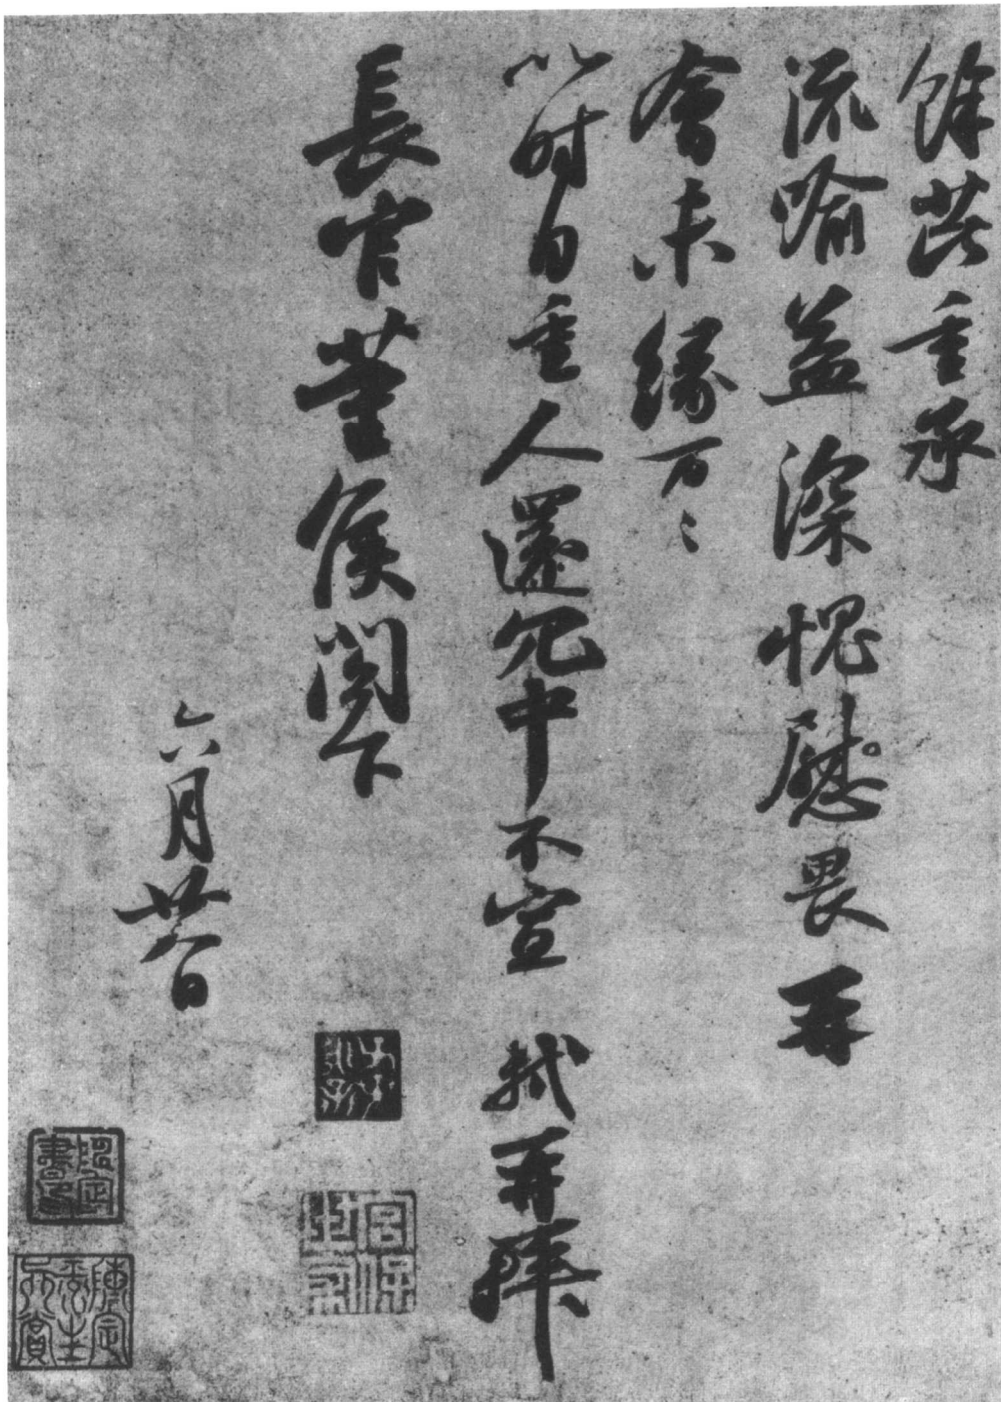 餘芘重承
流喻益深愧慰畏再
會未緣万々
以時自重人還冗中不宣 軾再拜
長官董侯閤下
六月廿八日
宮保世家